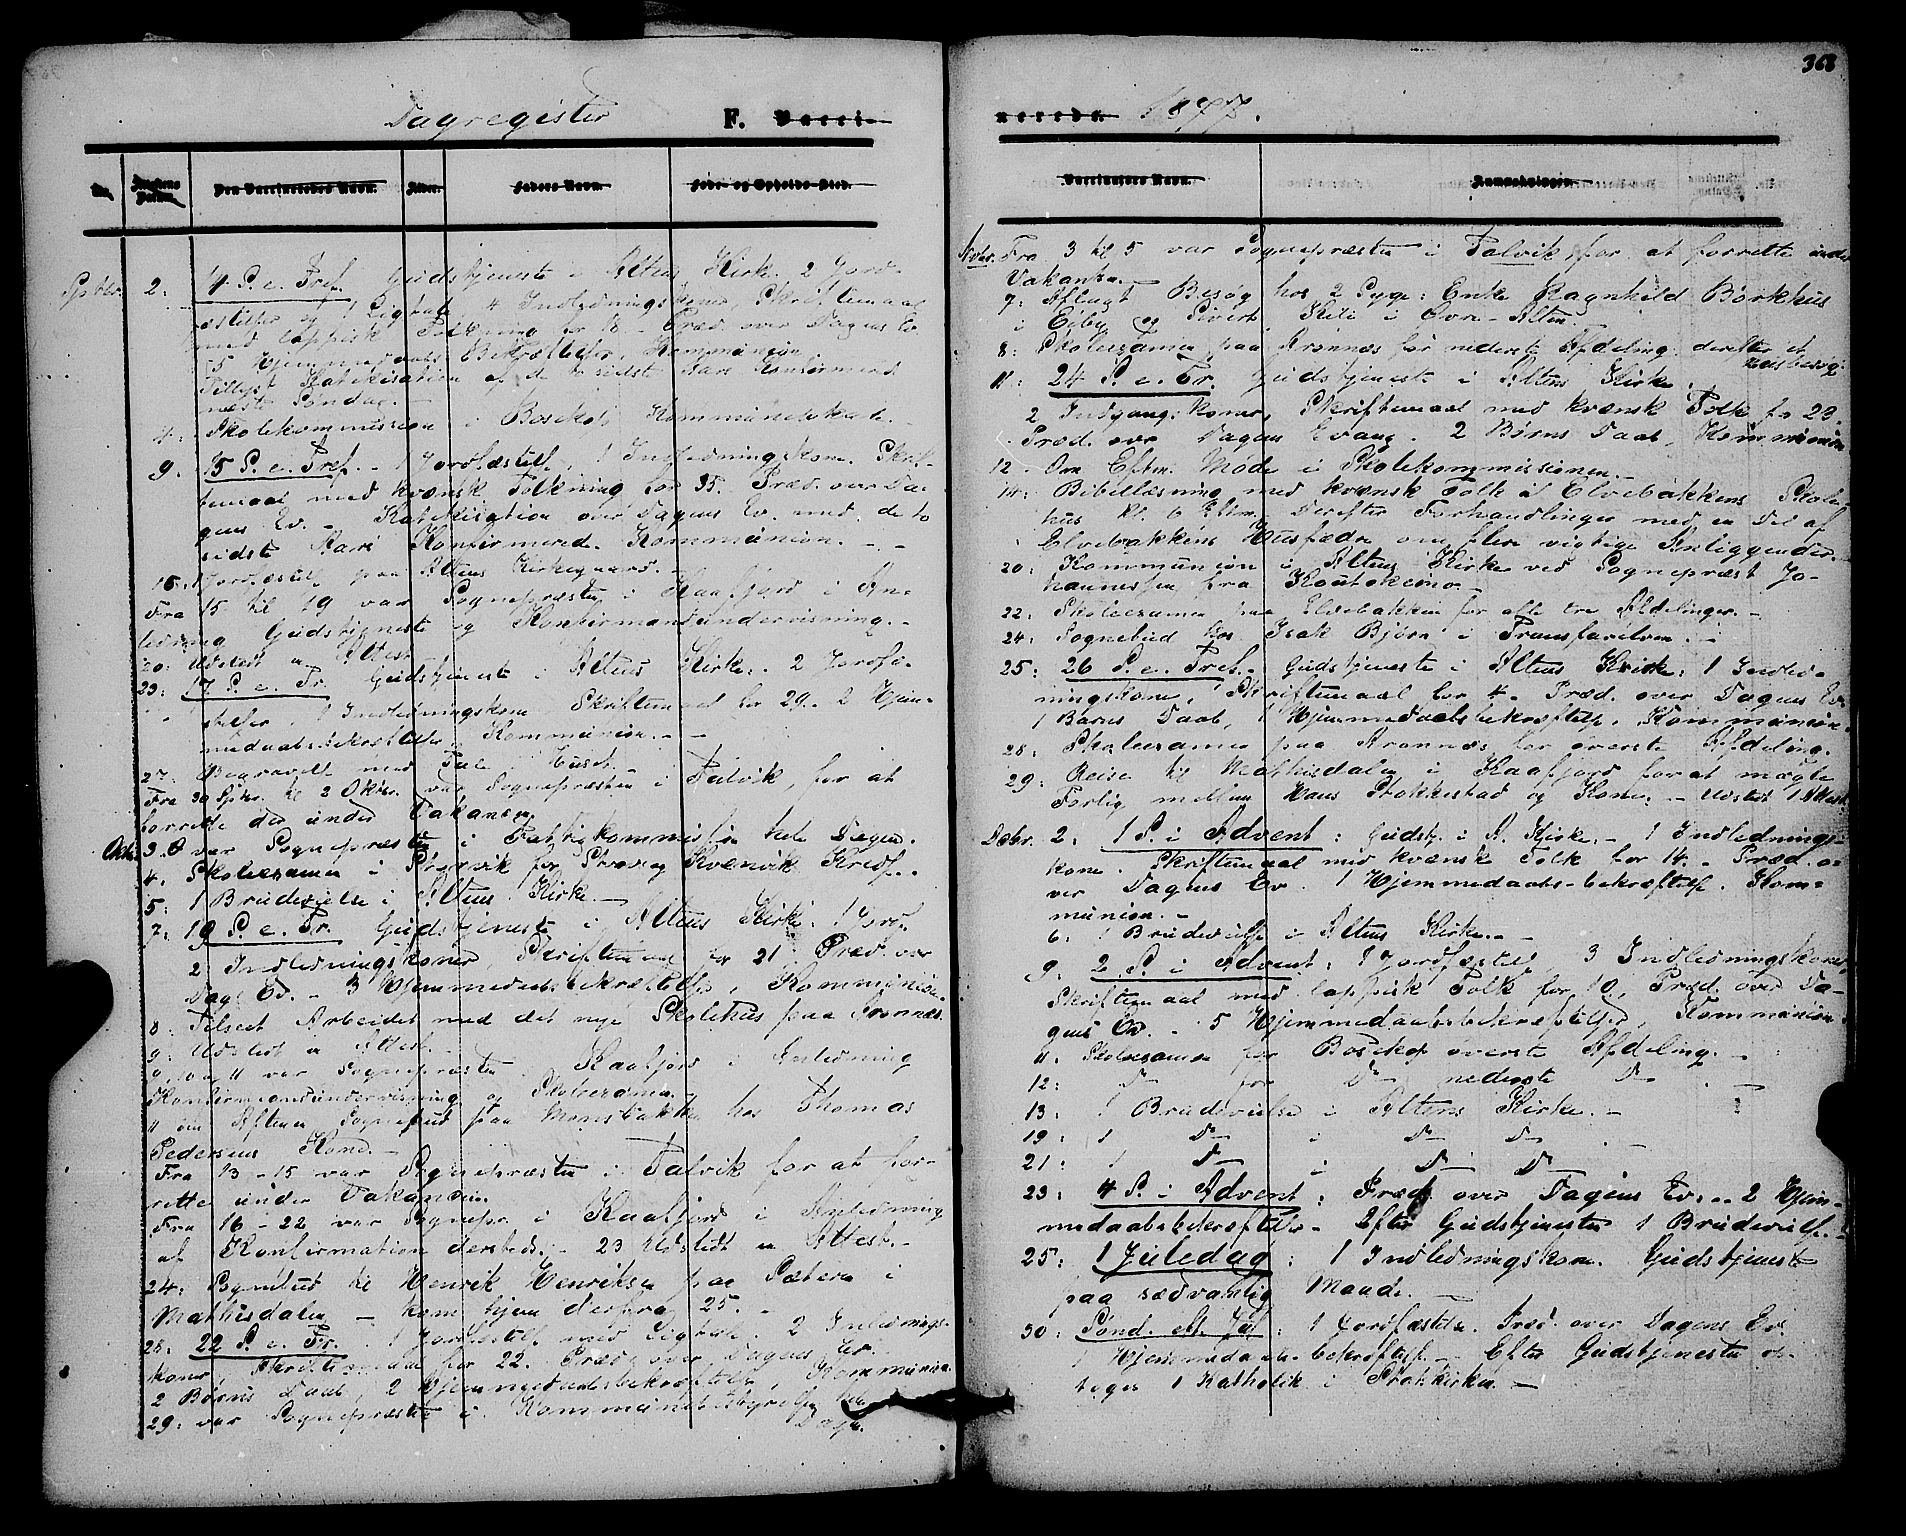 368
Dagregister F. Vacci-
nerede. 1877.
No. Datum. Den Vaccineredes Navn. Alder. Faders Navn. Føde- og Opholds-Sted.
Septbr. 2: 14 S. e. Tref. Gudstjeneste i Altens Kirke. 2 Jord-
fæstelser og 1 Ligtale, 4 Indledningskoner, Skriftemaal
med lappisk Tolkning for 18. Præd. over Dagens Ev.
5 Hjemmedaabs Bekræftelser. Kommunion.
Tillyst Katekisation af de to sidste Aars Konfirmerede
næste Søndag.
4: Skolekommission i Bosekop Kommunelokale.
9. 15 S. e. Tref. 1 Jordfæstelse, 1 Indledningskone. Skrif-
temaal med kvænsk Tolkning for 35. Præd. over Da-
gens Ev. - Katekisation over Dagens Ev. med de to
sidste Aars Konfirmerede. Kommunion. - -
15: 1 Jordfæstelse paa Altens Kirkegaard. -
Fra 15 til 19 var Sognepræsten i Kaafjord i An-
ledning Gudstjeneste og Konfirmantundervisning. -
20: Udstedt en Attest.
23: 17 S. e. Tr. Gudstjeneste i Altens Kirke. 2 Jordfæ-
stelser, 1 Indledningskone, Skriftemaal for 29. 2 Hjem-
medaabsbekræftelser, Kommunion. - -
27: Begravelse med Tale i Huset.
Fra 30 Sptbr. til 2 Oktbr. var Sognepræsten i Talvik, for at
forrette der under Vakansen.
Oktb. 3. var Sognepræsten i Fattigkommission hele Dagen.
4. Skoleexamen i for og Kvænvik Kreds.
5: 1 Brudevielse i Altens Kirke. -
7: 19 S. e. Tr. Gudstjeneste i Altens Kirke: 1 Jordf.
2 Indledningskoner, Skriftemaal for 21. Præd. over
Dag. Ev. - 3 Hjemmedaabsbekræftelser, Kommunion.
8: Tilseet Arbeidet med det nye Skolehus paa Kronnæs.
9: Udstedt en Attest. -
9, 10 og 11 var Sognepræsten i Kaafjord i Anledning
Konfirmandundervisning og Skoleexamen.
11 om Aftenen Sognebud paa hos Thomas
Pedersens Kone. -
Fra 13 - 15 var Sognepræsten i Talvik for at for-
rette under Vakansen.
Fra 16 - 22 var Sognepr. i Kaafjord i Anledning
af Konfirmation dersteds. - 23 Udstedt en Attest. -
24: Sognebud til Henrik Henriksen paa Sætern i
Mathisdalen - kom hjem derfra 25. -
28: 22 S. e. Tr. 1 Jordfæstelse med Ligtale. 2 Indlednings-
koner, Skriftemaal for 22. Præd. over Dagens Ev.
2 Børns Daab, 2 Hjemmedaabsbekræftelser, Kommunion.
29: var Sognepræsten i Kommunebestyrelse hele
Dagen.
Vaccinators Navn. Anmærkninger.
Novbr. Fra 3 til 5 var Sognepræsten i Talvik for at forrette under
Vakantsen.
7: Aflagt Besøg hos 2 Syge: Enke Ragnhild Børkhus
i Eiby og Sivert i Øvre-Alten.
8: Skoleexamen paa Kronnæs for nederste Afdeling derefter et
Husbesøg.
11: 24 S. e. Tr. Gudstjeneste i Altens Kirke.
2 Indgangs koner, Skriftemaal med kvænsk Tolk for 23.
Præd. over Dagens Evang. 2 Børns Daab, Kommunion
12 - Om Eftm. Møde i Skolekommissionen. -
14: Bibellæsning med kvænsk Tolk i Elvebakkens Skole-
hus kl. 6 Eftm. Derefter Forhandlinger med en Del af
Elvebakkens Husfædre om flere vigtige Anliggender.
20: Kommunion i Altens Kirke ved Sognepræst Jo-
hannessen fra Koutokeino. -
22: Skoleexamen paa Elvebakken for alle tre Afdelinger. -
24: Sognebud hos Isak Bjørn i Transfarelven. -
25: 26 S. e. Tref. - Gudstjeneste i Altens Kirke: 1 Indled-
ningskone, Skriftemaal for 4. Præd. over Dagens Ev.
1 Barns Daab, 1 Hjemmedaabsbekræftelse. Kommunion.
28: Skoleexamen paa Kronnæs for øverste Afdeling.
29: Reise til Mathisdalen i Kaafjord for at mægle
Forlig mellem Hans Stokkestad og Kone. - Udstedt 1 Attest
Decbr. 2: 1 S. i Advent: Gudstj. i A. Kirke. - 1 Indlednings-
kone. Skriftemaal med kvænsk Tolk for 14. - Præd. o-
ver Dagens Ev. 1 Hjemmedaabs-bekræftelse. Kom-
munion. -
6: 1 Brudevielse i Altens Kirke. -
9: 2 S. i Advent: 1 Jordfæstelse, 3 Indledningskoner
Skriftemaal med lappisk Tolk for 10, Præd. over Da-
gens Ev. - 5 Hjemmedaabsbekræftelser, Kommunion.
11. Skoleexamen for Bosekop øverste Afdeling. -
12: Do for Do nederste Do -
13: 1 Brudevielse i Altens Kirke. -
19: 1 Do i Do Do -
21: 1 Do i Do Do
23: 4 S. i Advent: Præd. over Dagens Ev. - 2 Hjem-
medaabsbekræftelser - Efter Gudstjenesten 1 Brudevielse. -
25: 1 Juledag: 1 Indledningskone. Gudstjeneste
paa sædvanlig Maade. -
30: Sønd. eft. Jul: 1 Jordfæstelse. Præd. over Dagens Ev.
1 Hjemmedaabs-bekræftelse. - Efter Gudstjenesten op-
toges 1 Katholik i Statskirken. -